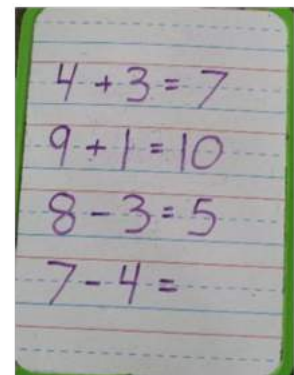 4 + 3 = 7
9 + 1 = 10
8 - 3 = 5
7 - 4 =